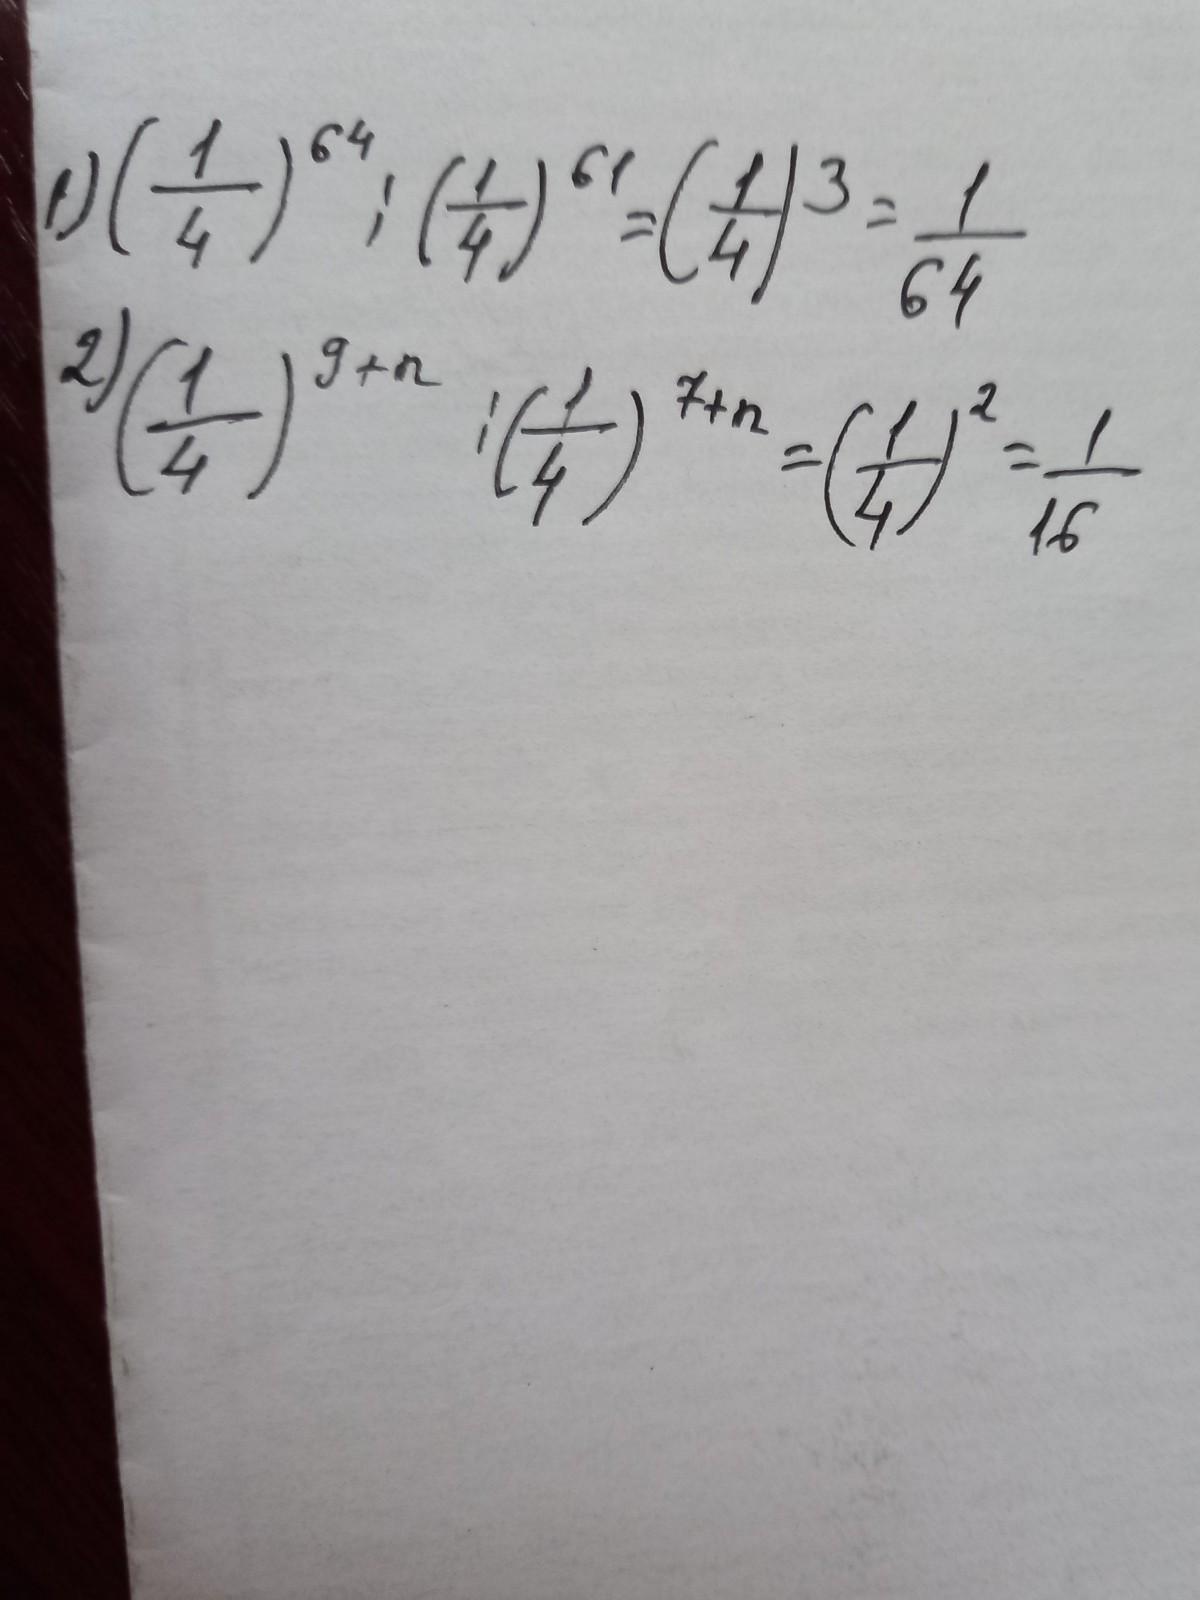 1) (1/4)^64 : (1/4)^61 = (1/4)^3 = 1/64
2) (1/4)^9+n : (1/4)^7+n = (1/4)^2 = 1/16